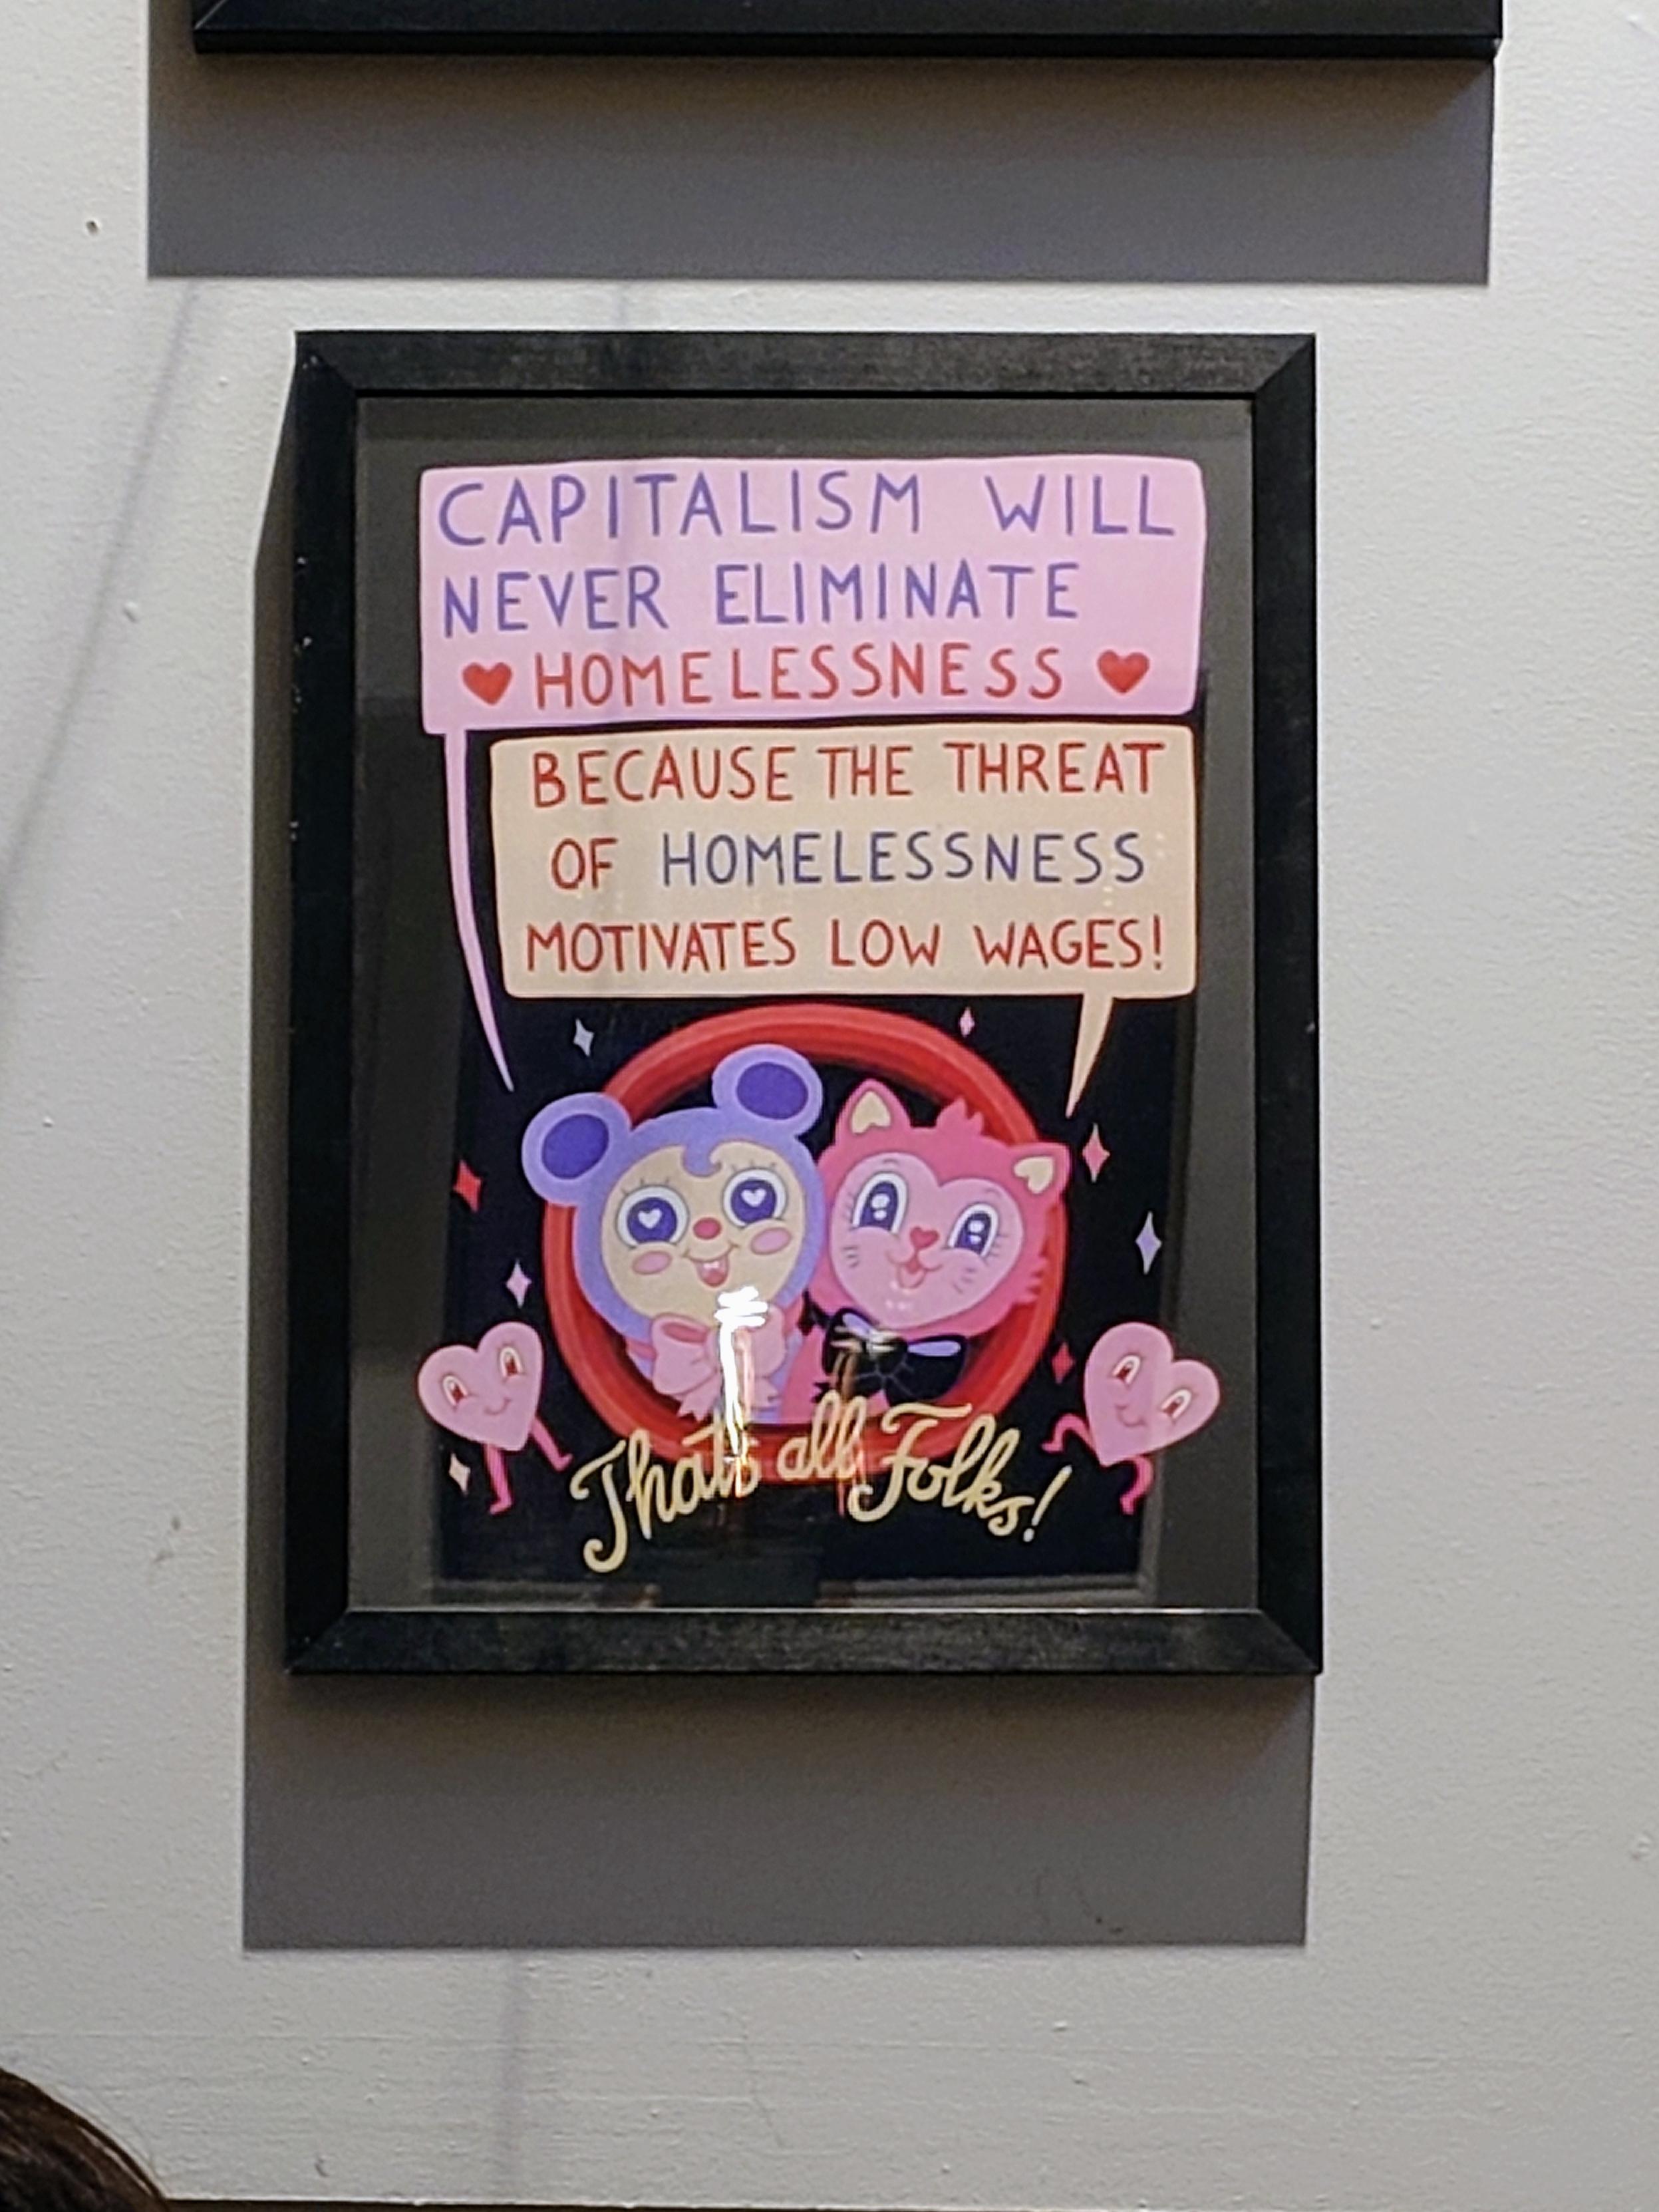 CAPITALISM WILL
NEVER ELIMINATE
HOMELESSNESS
BECAUSE THE THREAT
OF HOMELESSNESS
MOTIVATES LOW WAGES!
That's all Folks!